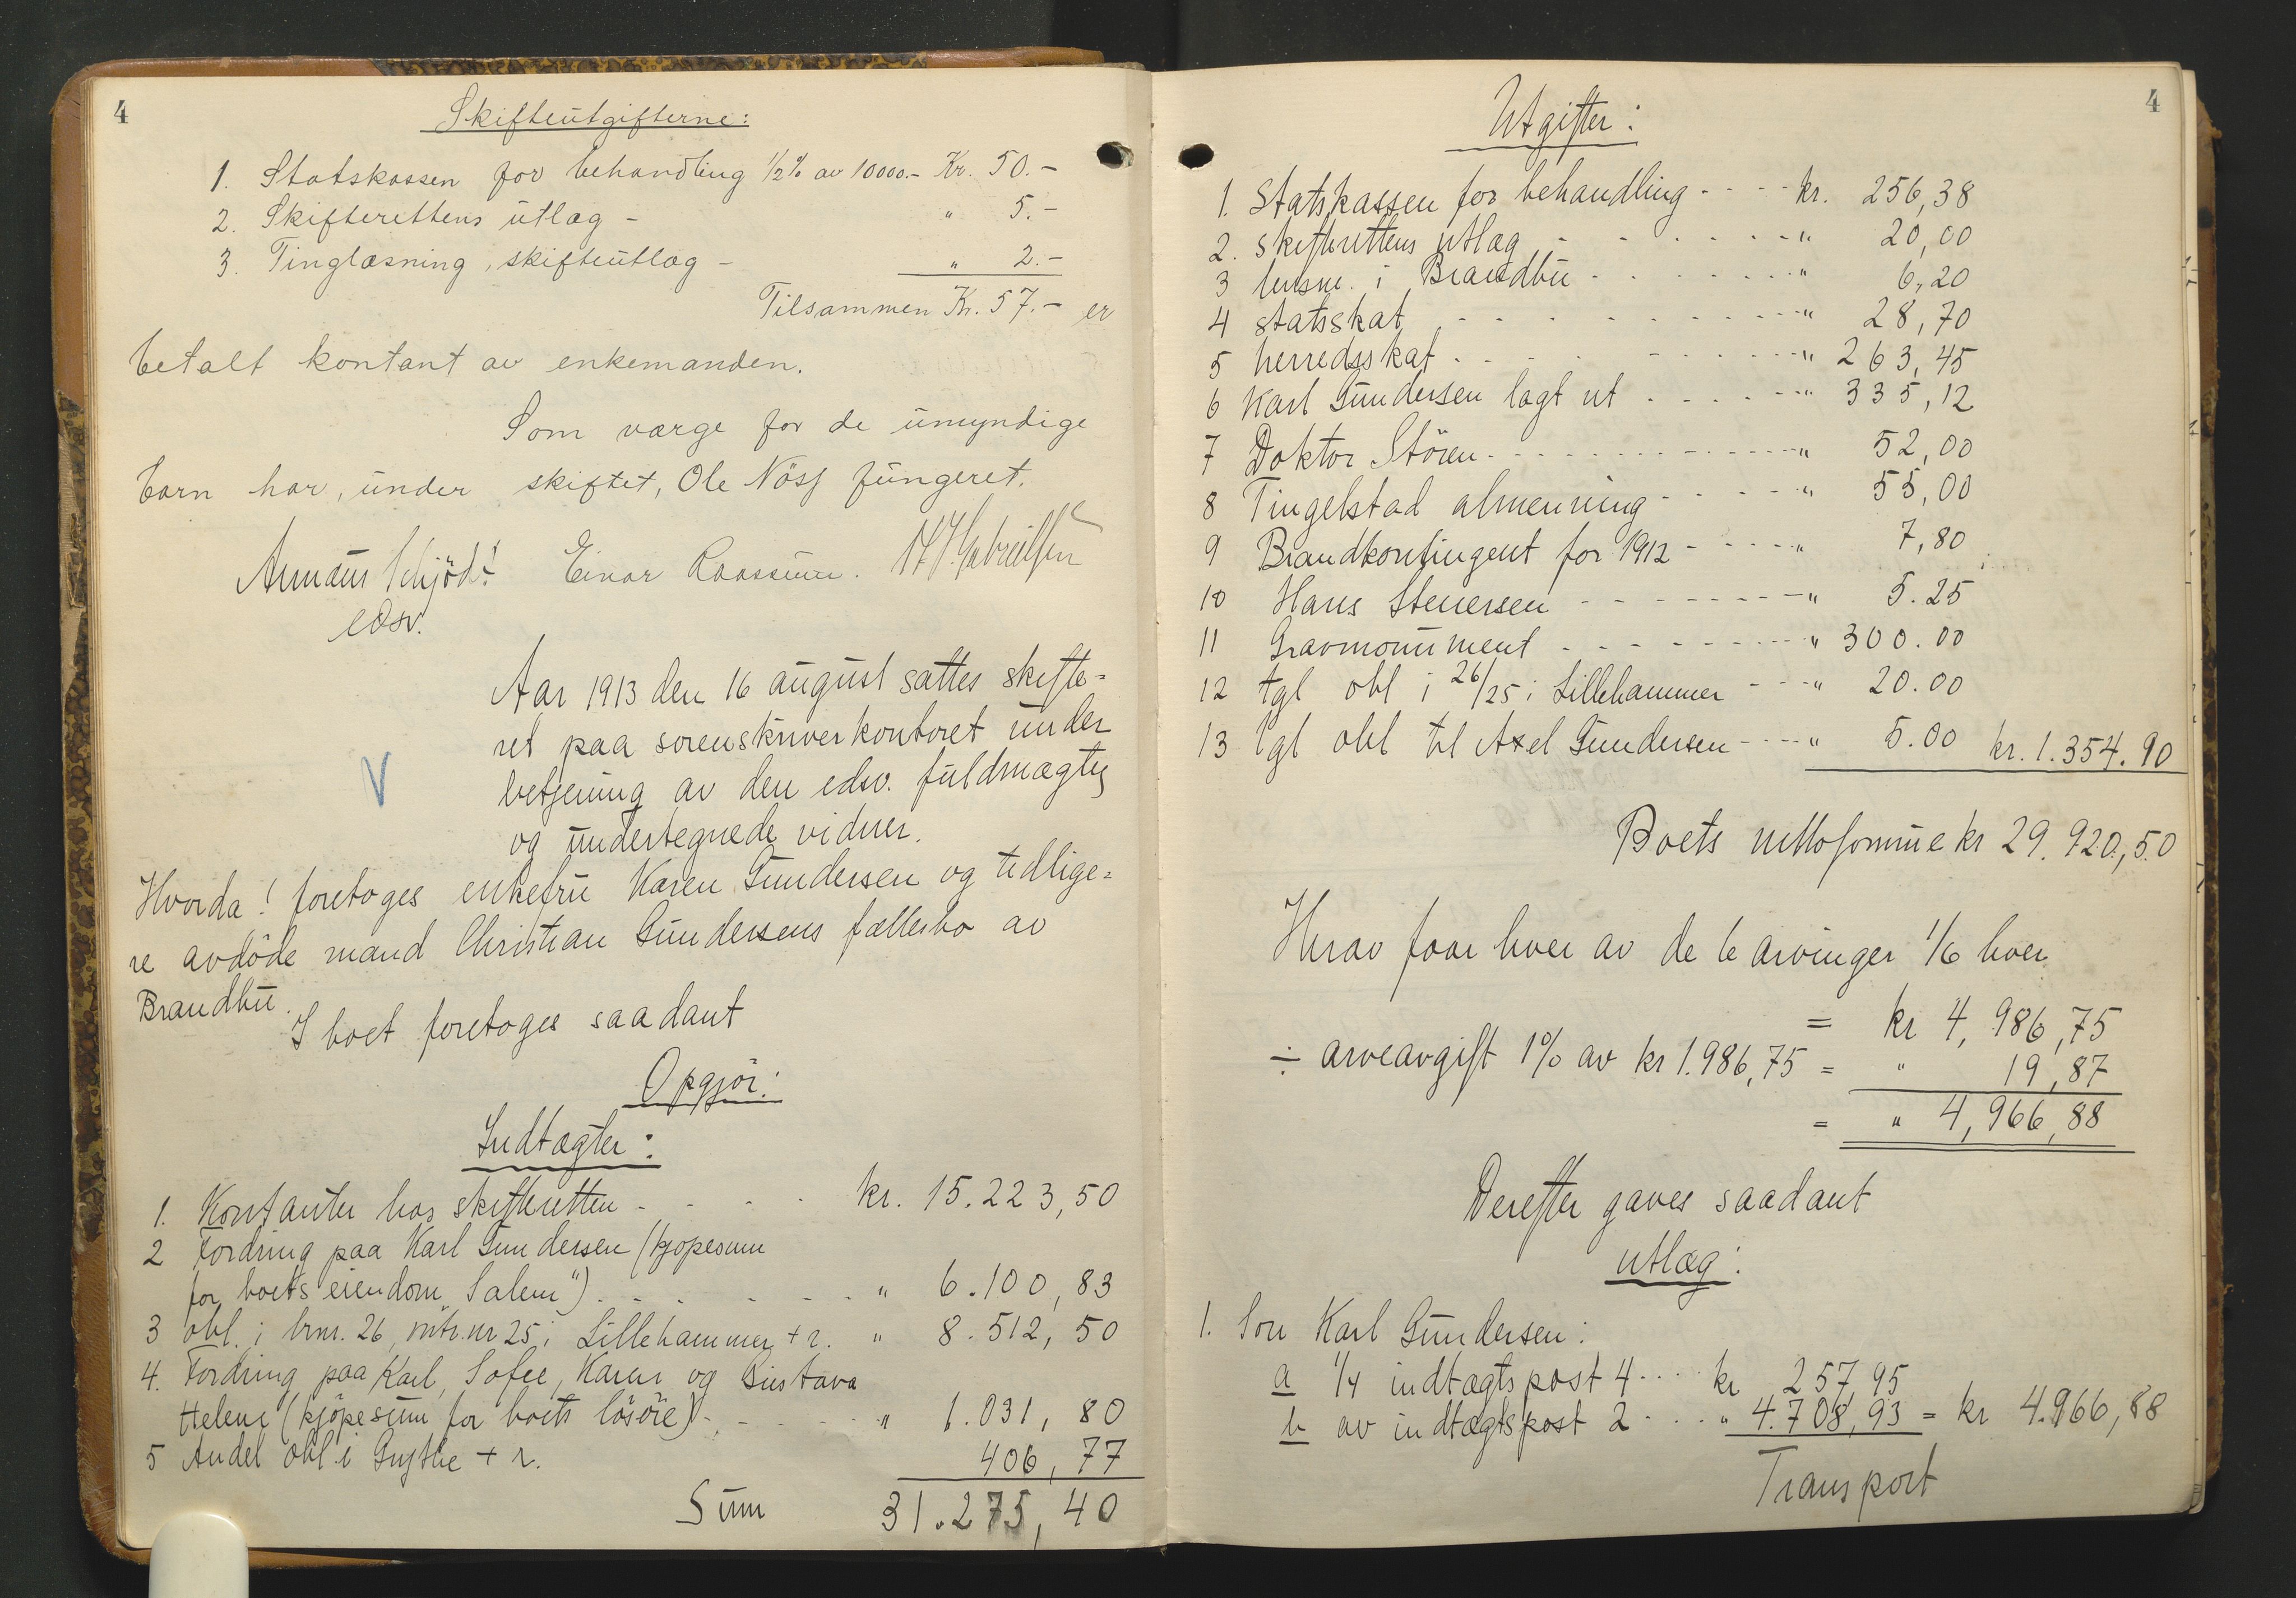 4
Skifteutgifterne:
1. Statskassen for behandling 1/2% av 10000.- Kr. 50.-
2. Skifterettens utlæg - " 5.-
3. Tinglæsning, skifteutlæg - " 2.-
Tilsammen Kr. 57.- er
betalt kontant av enkemanden.
Som værge for de umyndige
barn har, under skiftet, Ole Nöss fungeret.
Einar Raassum.
edsv.
Aar 1913 den 16 august sattes skifte-
ret paa sorenskriverkontoret under
betjening av den edsv. fuldmægtig
og undertegnede vidner.
V
Hvorda! foretoges enkefru Karen Gundersen og tidlige-
re avdöde mand Christian Gundersens fællesbo av
Brandbu.
I boet foretoges saadant
Opgjör:
Indtægter:
1. Kontanter hos skifteretten - - - - kr. 15.223,50
2 Fordring paa Karl Gundersen (kjöpesum
for boets eiendom "Salem") - - - - " 6.100,83
3 obl. i brnr. 26, mtr.nr 25 i Lillehammer + r. " 8.512,50
4. Fordring paa Karl, Sofie, Karen og Gustava
Helene (kjöpesum for boets lösöre) - - - - " 1.031,80
5 Andel obl i + r. 406,77
Sum 31.275,40
4
Utgifter:
1. Statskassen for behandling - - - - kr. 256,38
2. skifterettens utlæg - - - - " 20,00
3 lensm. i Brandbu - - - - " 6,20
4 statsskat - - - - " 28,70
5 herredsskat - - - - " 263,45
6 Karl Gundersen lagt ut - - - - " 335,12
7 Doktor Stören - - - - " 52,00
8 Tingelstad almenning - - - - " 55,00
9 Brandkontingent for 1912 - - - - " 7,80
10 Hans Stenersen - - - - " 5.25
11 Gravmonument - - - - " 300.00
12 tgl obl i 26/25 i Lillehammer - - - " 20.00
13 tgl obl til Axel Gundersen - - - - " 5.00 kr. 1.354.90
Boets nettoformue kr 29.920,50
Herav faar hver av de 6 arvinger 1/6 hver
= kr 4,986,75
÷ arveavgift 1% av kr 1.986,75 = " 19,87
= " 4,966,88
Derefter gaves saadant
utlæg:
1. Sön Karl Gundersen:
a 1/4 indtægtspost 4 .... kr 257 95
b av indtægtspost 2 .... " 4.708,93 = kr 4.966,88
Transport